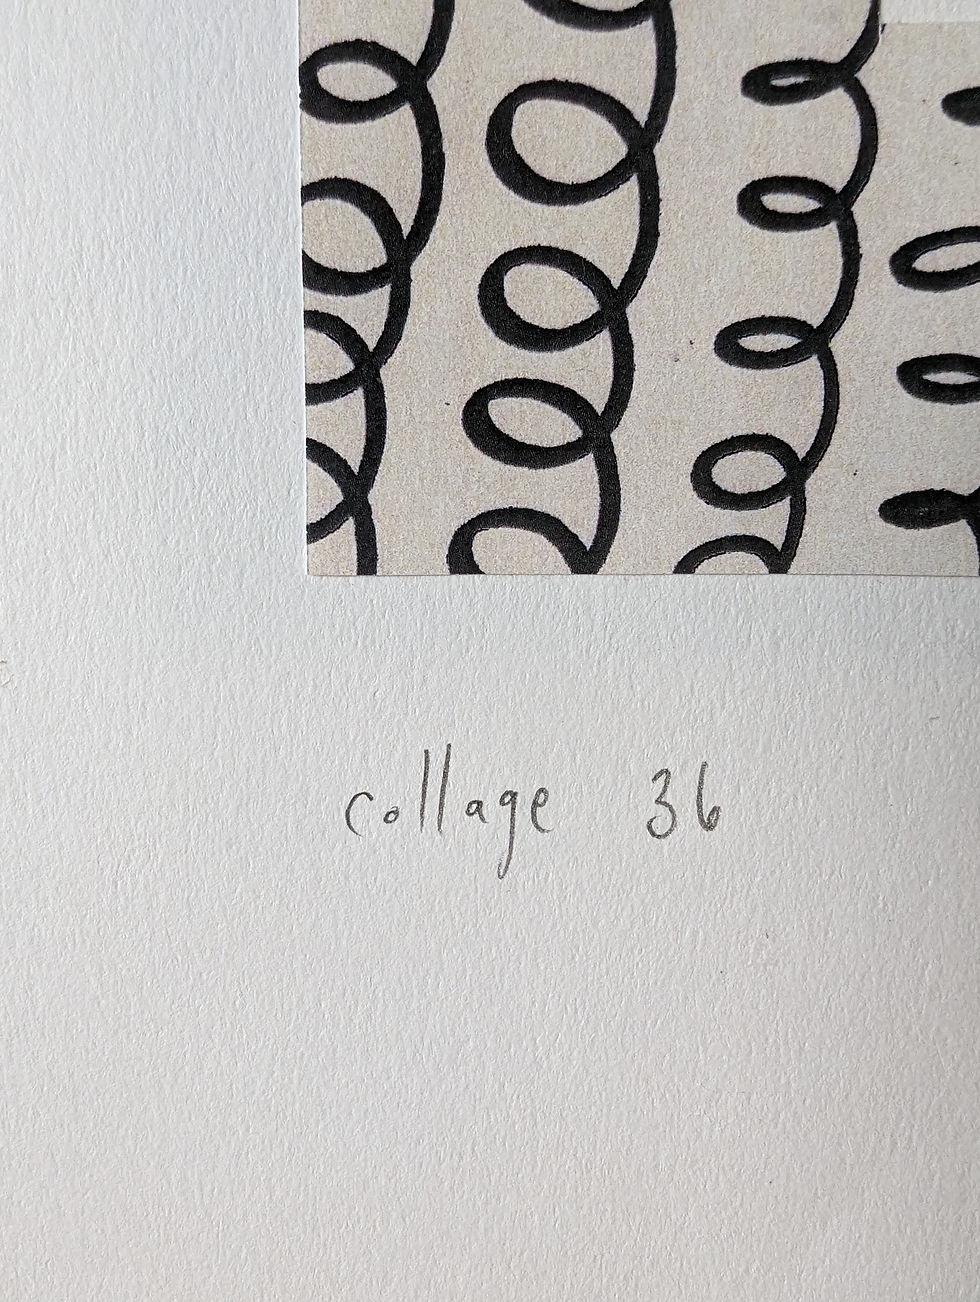 collage 36